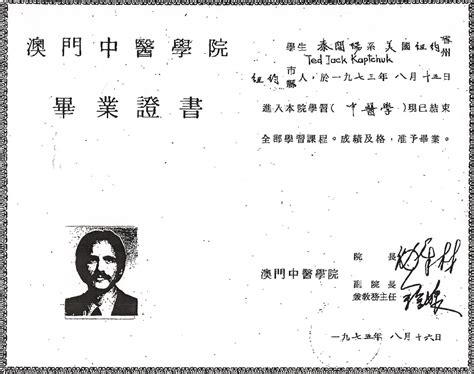 澳門中醫學院
畢業證書
學生 泰爾陽系美國紐約省州
Ted Jack Kaptchuk
紐約市縣人，於一九七三年八月十五日
進入本院學習（中醫學）現已結束
全部學習課程。成績及格，准予畢業。
澳門中醫學院
院長
副院長
兼教務主任
一九七五年八月十六日